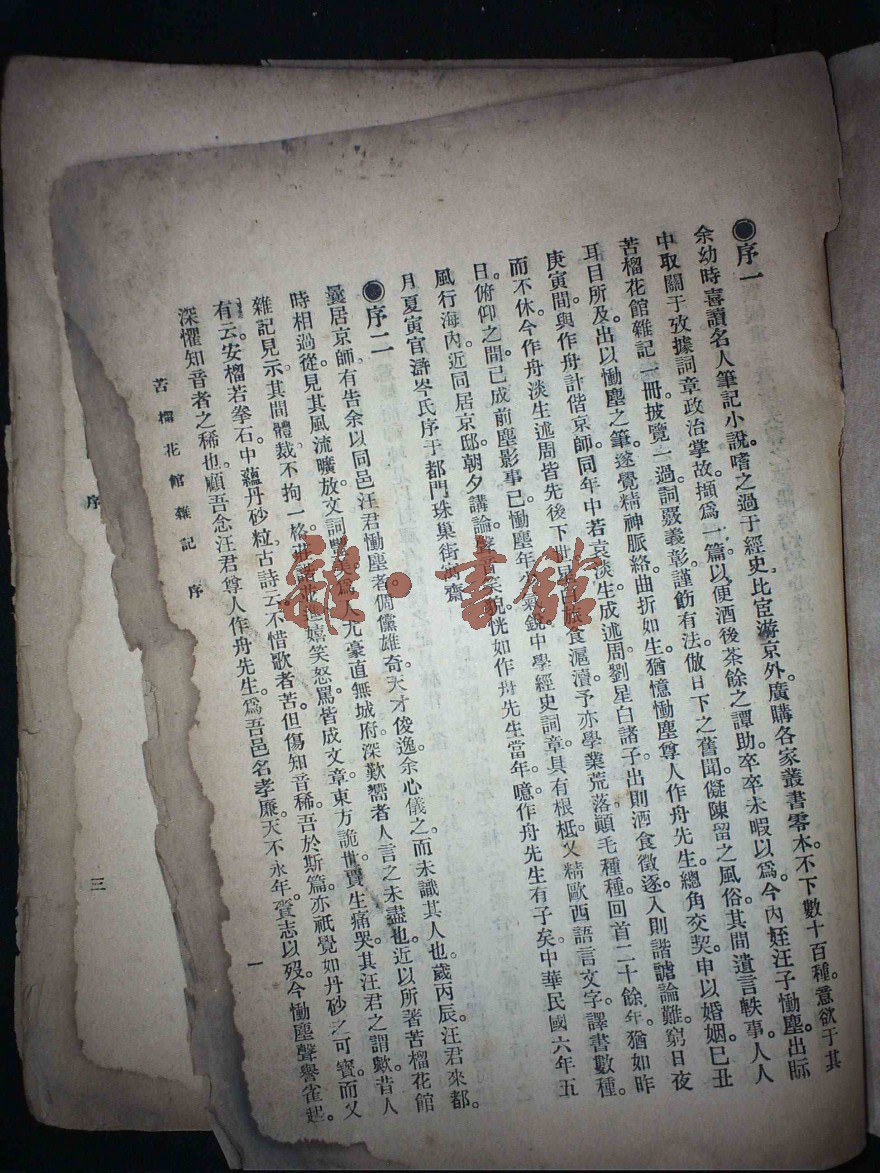 ●序一
余幼時喜讀名人筆記小說。嗜之過于經史。比宦游京外。廣購各家叢書零本。不下數十百種。意欲于其
中取關于攷據詞章政治掌故。擷爲一篇。以便酒後茶餘之譚助。卒卒未暇以爲。今內姪汪子慟塵出眎
苦榴花館雜記一冊。披覽一過。詞覈義彰。謹飭有法。倣日下之舊聞。儗陳留之風俗。其間遺言軼事。人人
耳目所及。出以慟塵之筆。遂覺精神脈絡。曲折如生。猶憶慟塵尊人作舟先生。總角交契。申以婚姻。已丑
庚寅間。與作舟計偕京師。同年中若袁淡生成述周劉星白諸子。出則酒食徵逐。入則諧論難窮。日夜
而不休。今作舟淡生述周皆先後下世。星白旅食滬瀆。予亦學業荒落。顚毛種種。回首二十餘年。猶如昨
日。俯仰之間。已成前塵影事。已慟塵年少氣銳。中學經史詞章。具有根柢。又精歐西語言文字。譯書數種。
風行海內。近同居京邸。朝夕講論。聲音笑貌。恍如作舟先生當年。噫。作舟先生有子矣。中華民國六年五
月夏寅官滸岑氏序于都門珠巢街齋
●序二
曩居京師。有告余以同邑汪君慟塵者。倜儻雄奇。天才俊逸。余心儀之。而未識其人也。歲丙辰。汪君來都。
時相過從。見其風流曠放。文詞美。爲人尤豪直無城府。深歎嚮者人言之未盡也。近以所著苦榴花館
雜記見示。其間體裁不拘一格。嬉笑怒罵。皆成文章。東方詭世。賈生痛哭。其汪君之謂歟。昔人
有云。安榴若拳石。中蘊丹砂粒。古詩云。不惜歌者苦。但傷知音稀。吾於斯篇。亦祇覺如丹砂之可寶。而又
深懼知音者之稀也。顧吾念汪君尊人作舟先生。爲吾邑名孝廉。天不永年。賷志以歿。今慟塵聲譽雀起。
苦榴花館雜記 序
一
序
三
雜·書館